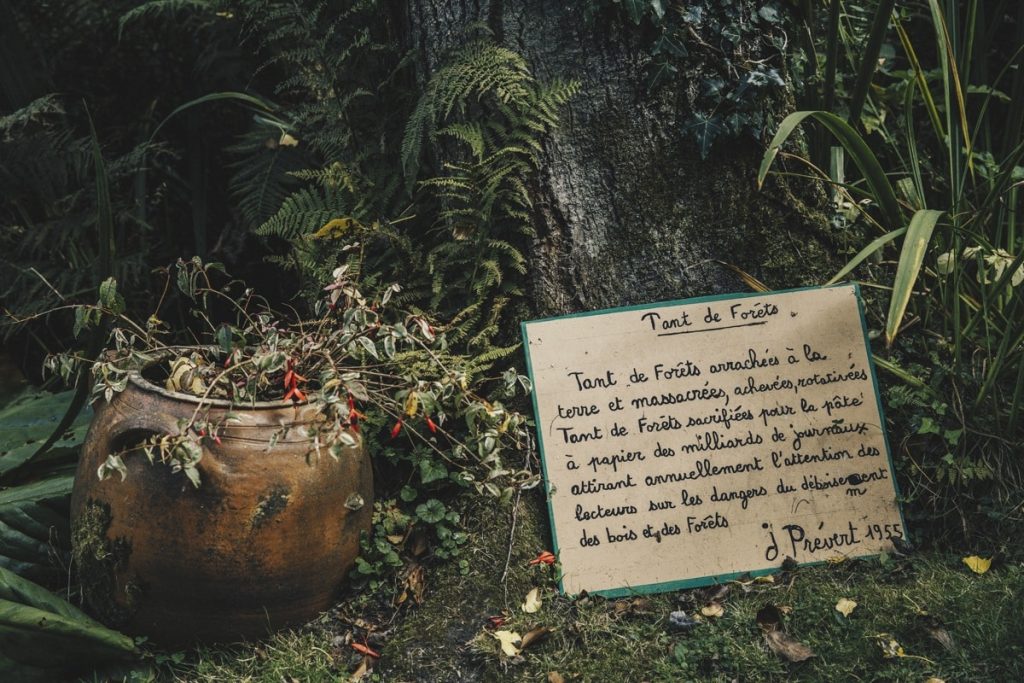 Tant de Forêts
Tant de Forêts arrachées à la
terre et massacrées, achevées, rotativées
Tant de Forêts sacrifiées pour la pâte
à papier des milliards de journaux
attirant annuellement l'attention des
lecteurs sur les dangers du déboisement
des bois et des Forêts
J. Prévert 1955